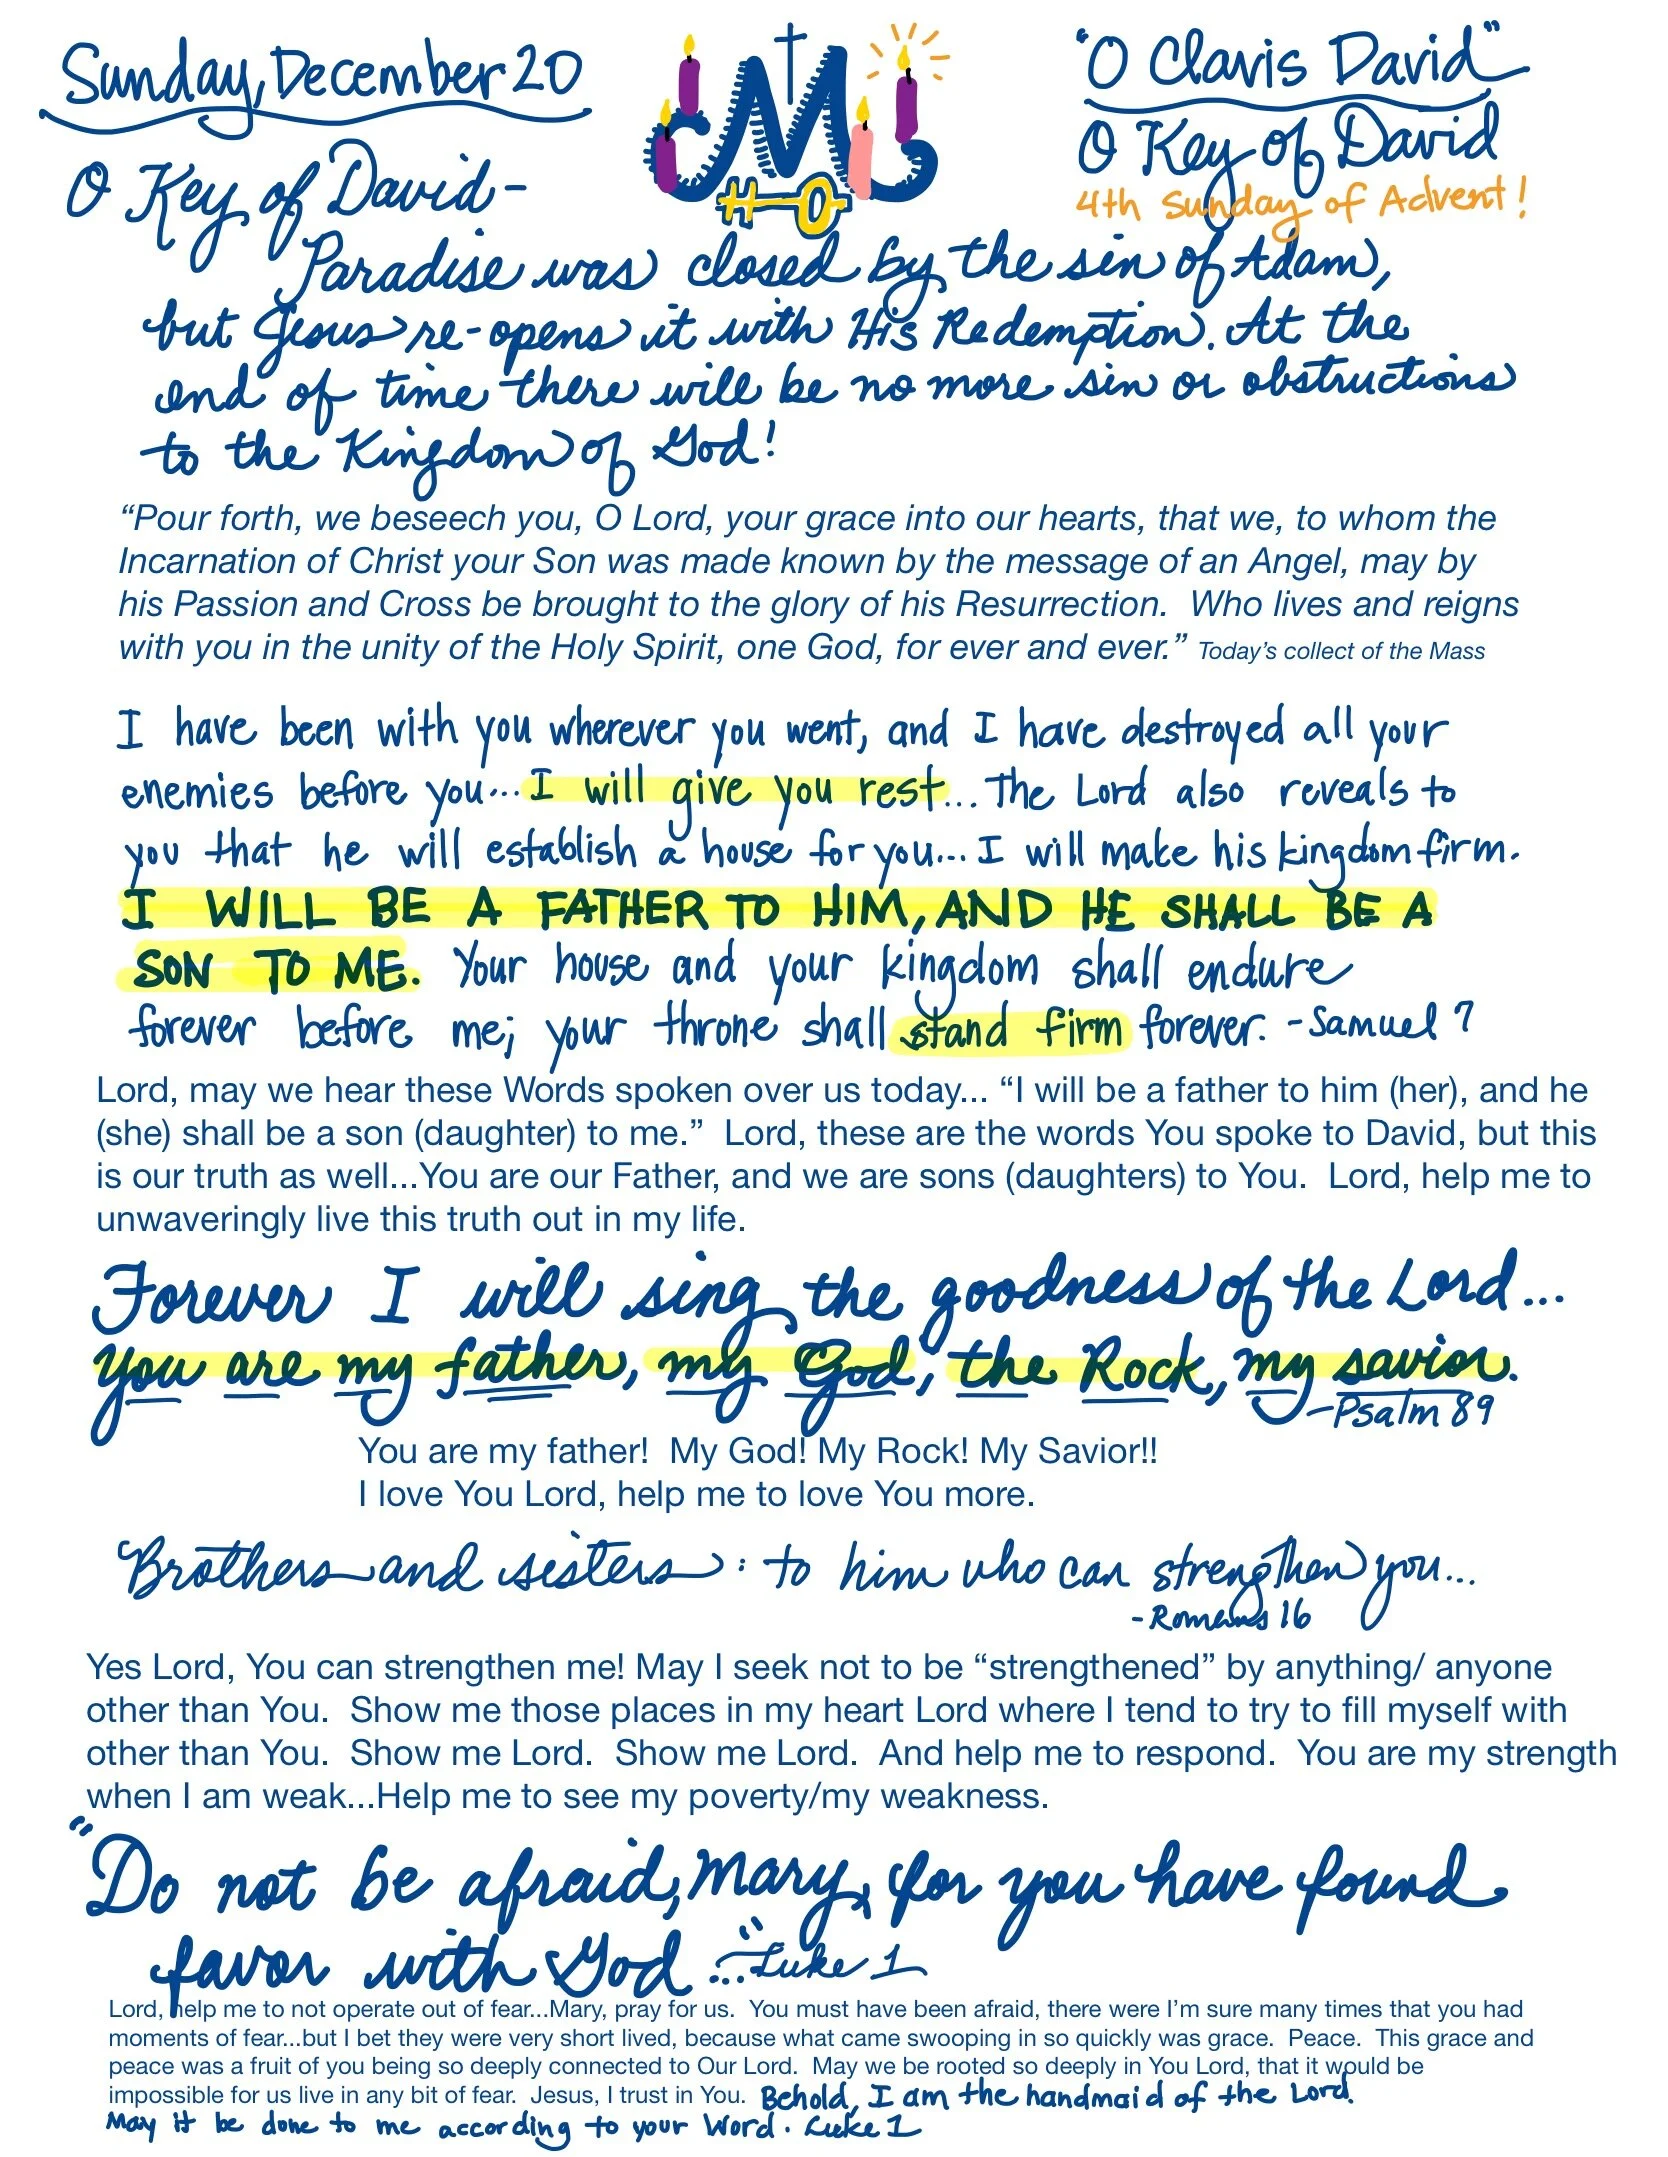 Sunday, December 20
"O Clavis David"
O Key of David
4th Sunday of Advent!
M
O Key of David -
Paradise was closed by the sin of Adam,
but Jesus re-opens it with His Redemption. At the
end of time there will be no more sin or obstructions
to the Kingdom of God!
“Pour forth, we beseech you, O Lord, your grace into our hearts, that we, to whom the
Incarnation of Christ your Son was made known by the message of an Angel, may by
his Passion and Cross be brought to the glory of his Resurrection.  Who lives and reigns
with you in the unity of the Holy Spirit, one God, for ever and ever.” Today’s collect of the Mass
I have been with you wherever you went, and I have destroyed all your
enemies before you... I will give you rest... The Lord also reveals to
you that he will establish a house for you... I will make his kingdom firm.
I WILL BE A FATHER TO HIM, AND HE SHALL BE A
SON TO ME. Your house and your kingdom shall endure
forever before me; your throne shall stand firm forever. - Samuel 7
Lord, may we hear these Words spoken over us today... “I will be a father to him (her), and he
(she) shall be a son (daughter) to me.”  Lord, these are the words You spoke to David, but this
is our truth as well...You are our Father, and we are sons (daughters) to You.  Lord, help me to
unwaveringly live this truth out in my life.
Forever I will sing the goodness of the Lord...
you are my father, my God, the Rock, my savior.
- Psalm 89
You are my father!  My God! My Rock! My Savior!!
I love You Lord, help me to love You more.
Brothers and sisters: to him who can strengthen you...
- Romans 16
Yes Lord, You can strengthen me! May I seek not to be “strengthened” by anything/ anyone
other than You.  Show me those places in my heart Lord where I tend to try to fill myself with
other than You.  Show me Lord.  Show me Lord.  And help me to respond.  You are my strength
when I am weak...Help me to see my poverty/my weakness.
"Do not be afraid, Mary, for you have found
favor with God..." - Luke 1
Lord, help me to not operate out of fear...Mary, pray for us.  You must have been afraid, there were I’m sure many times that you had
moments of fear...but I bet they were very short lived, because what came swooping in so quickly was grace.  Peace.  This grace and
peace was a fruit of you being so deeply connected to Our Lord.  May we be rooted so deeply in You Lord, that it would be
impossible for us live in any bit of fear.  Jesus, I trust in You. Behold, I am the handmaid of the Lord.
May it be done to me according to your Word. Luke 1